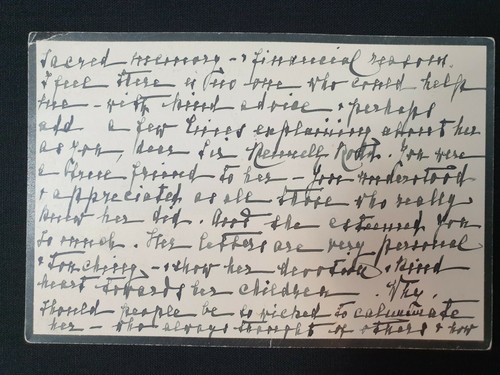 Sacred memory - & financial reasons.
I feel there is no one who could help
me - with kind advice & perhaps
add a few lines explaining about her
as you, dear Sir Rennell Rodd. You were
a true friend to her - You understood
& appreciated, as all those who really
knew her did. And she esteemed you
so much. Her letters are very personal
& touching - & show her devoted & kind
heart towards her children. Why
should people be so wicked to calumniate
her - who always thought of others & how